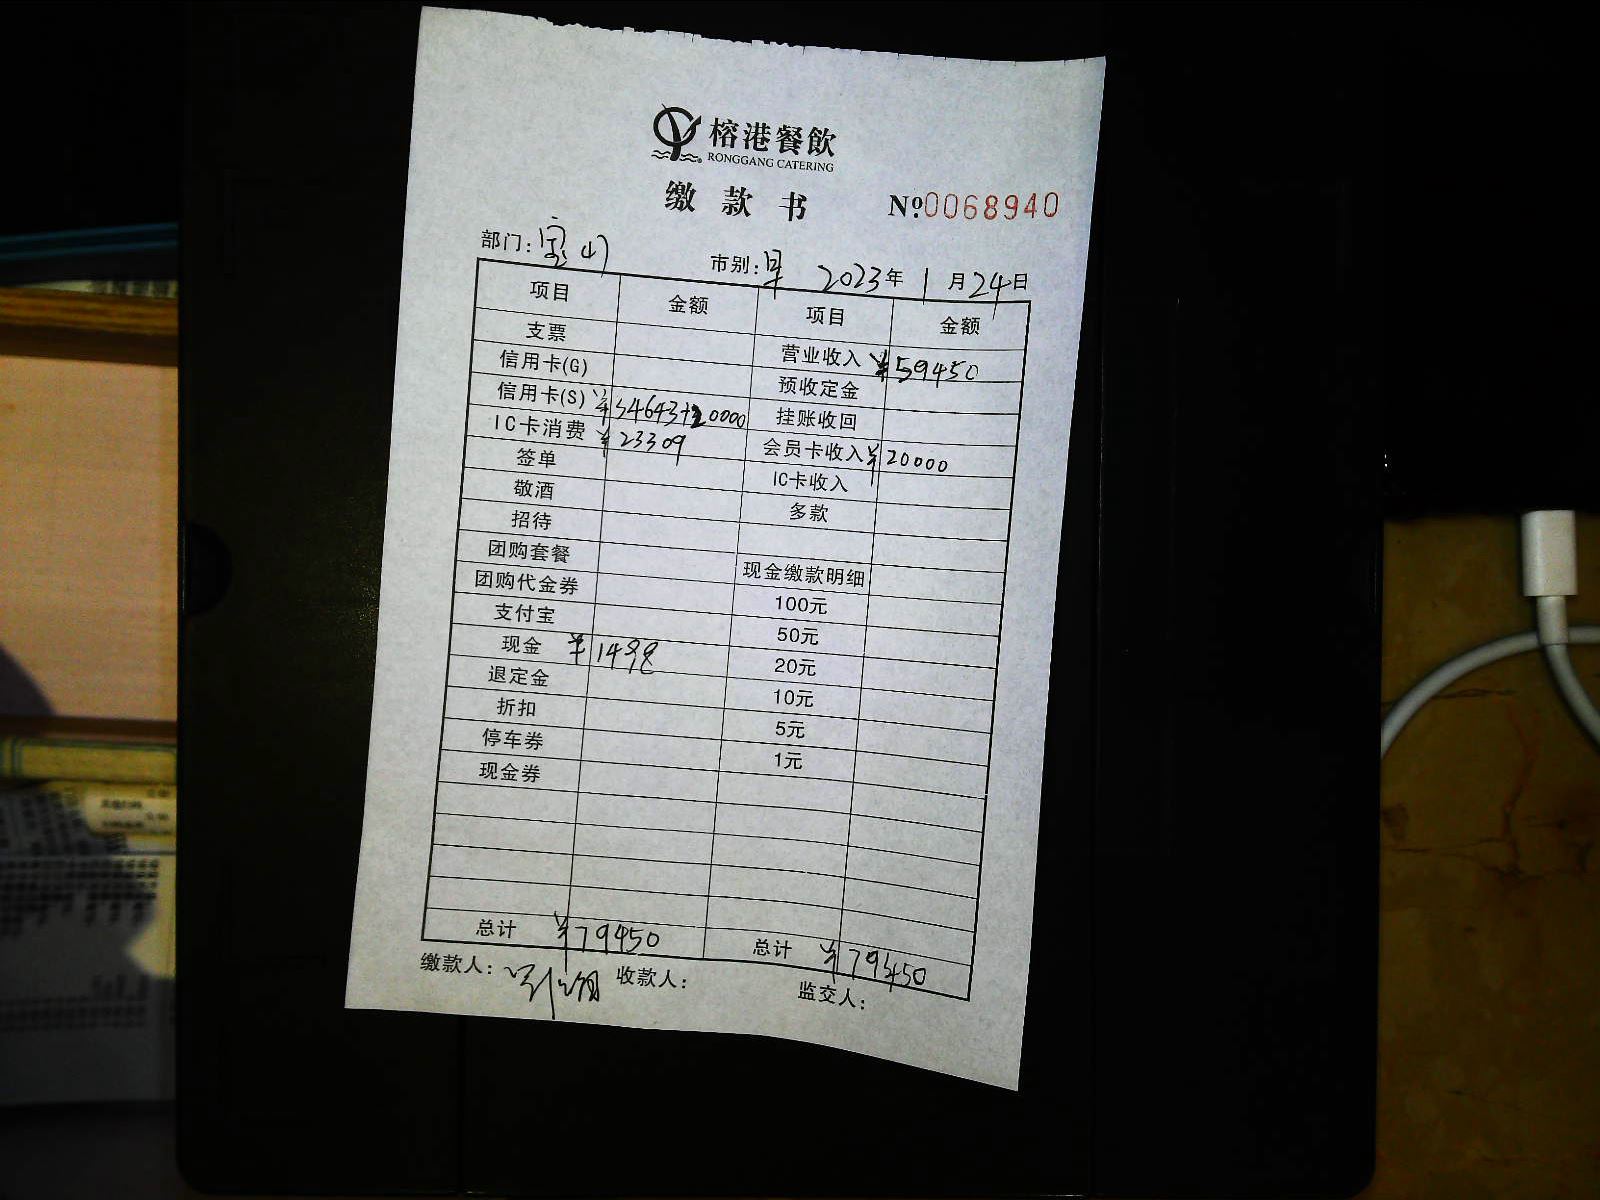 榕港餐飲
RONGGANG CATERING
缴款书 №0068940
部门: 宝山 市别: 2023年1月24日
项目 金额 项目 金额
支票 营业收入 ¥59450
信用卡(G) 预收定金
信用卡(S) ¥34643+20000 挂账收回
IC卡消费 ¥23309 会员卡收入 ¥20000
签单 IC卡收入
敬酒 多款
招待
团购套餐 现金缴款明细
团购代金券 100元
支付宝 50元
现金 ¥1498 20元
退定金 10元
折扣 5元
停车券 1元
现金券
总计 ¥79450 总计 ¥79450
缴款人: 收款人: 监交人: